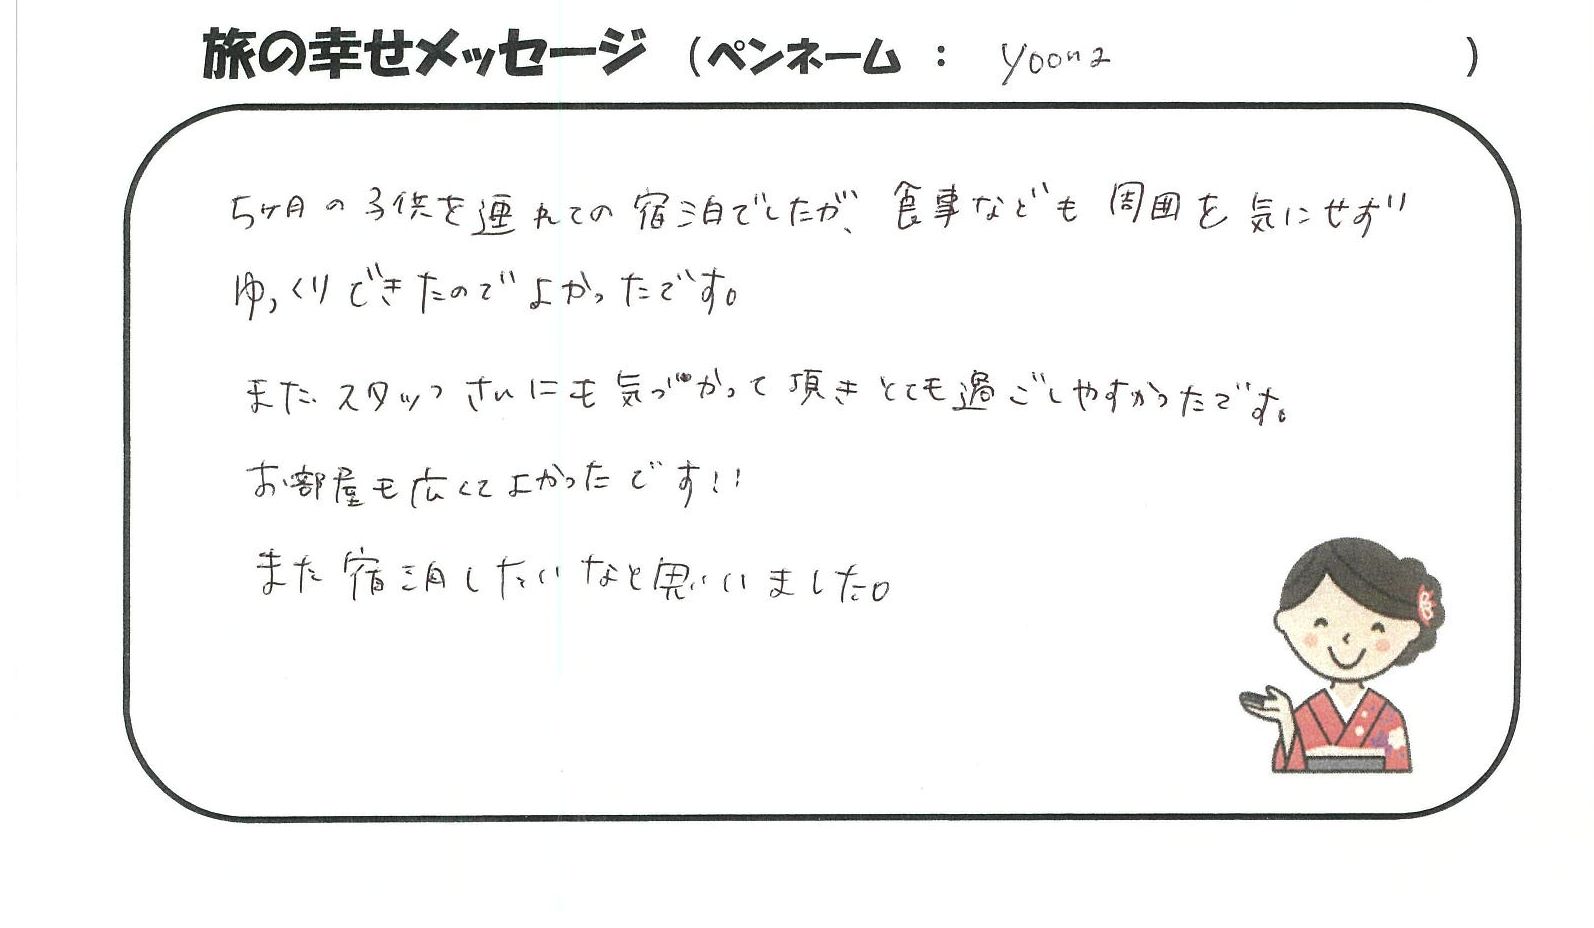 旅の幸せメッセージ (ペンネーム : yoona )
5ヶ月の子供を連れての宿泊でしたが、食事なども周囲を気にせず
ゆっくりできたのでよかったです。
またスタッフさんにも気づかって頂きとても過ごしやすかったです。
お部屋も広くてよかったです!!
また宿泊したいなと思いいました。